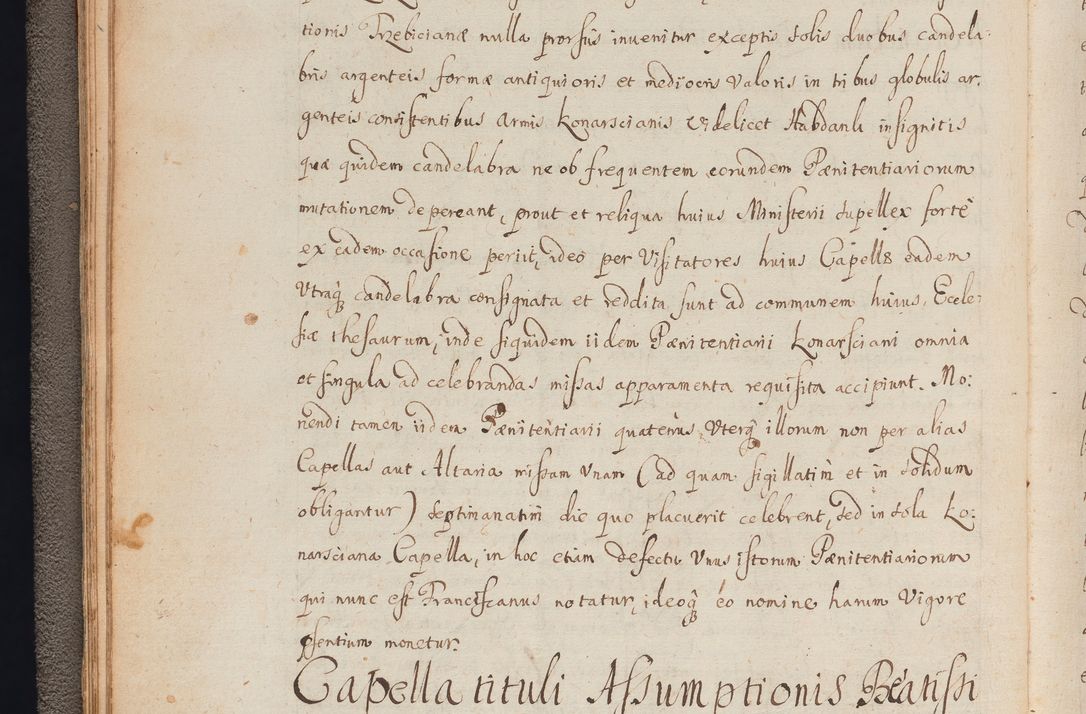 tionis Trzebicianæ nulla prorsus invenitur exceptis solis duobus candela-
bris argenteis formæ antiquioris et mediocris valoris in tribus globulis ar-
genteis consistentibus Armis Konarscianis videlicet Habdank insignitis
quæ quidem candelabra ne ob frequentem eorundem Pænitentiariorum
mutationem depereant, prout et reliqua huius Ministerii supellex forte
ex eadem occasione periit, ideo per Visitatores huius Capellæ eadem
Vtraq candelabra consignata et reddita sunt ad communem huius Eccle-
siæ thesaurum, inde siquidem iidem Pænitentiarii Konarsciani omnia
et singula ad celebrandas missas apparamenta requisita accipiunt. Mo:
nendi tamen iidem Pænitentiarii quatenus Vterq illorum non per alias
Capellas aut Altaria missam vnam (ad quam sigillatim et in solidum
obligantur) septimanatim die quo placuerit celebrent, sed in sola Ko:
narsciana Capella, in hoc etiam defectu Vnus istorum Pænitentiariorum
qui nunc est Franciscanus notatur, ideoq eo nomine harum Vigore
psentium monetur.
Capella tituli Assumptionis Beatissi